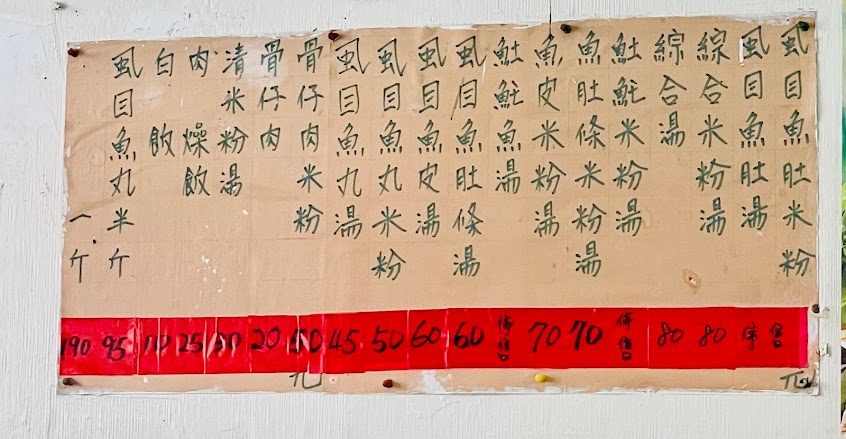 虱目魚肚米粉 售 元
虱目魚肚湯 停
綜合米粉湯 80
綜合湯 80
𩵚魠米粉湯 停售
魚肚條米粉湯 70
魚皮米粉湯 70
𩵚魠魚湯 停售
虱目魚肚條湯 60
虱目魚皮湯 60
虱目魚丸米粉 50
虱目魚丸湯 45
骨仔肉米粉 50 元
骨仔肉 20
清米粉湯 30
肉燥飯 25
白飯 10
虱目魚丸半斤 95
一斤 190